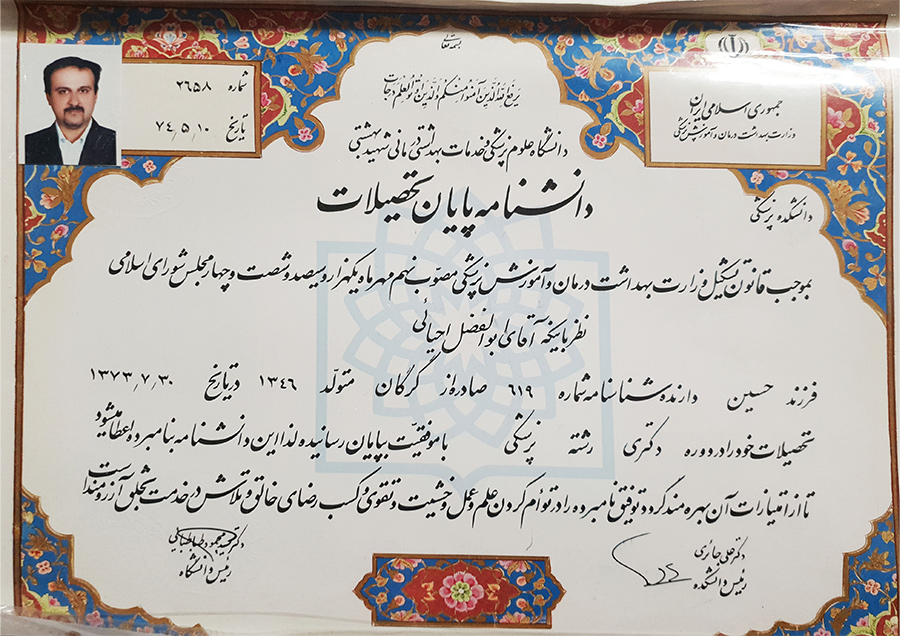 بسمه تعالی
یرفع الله الذین آمنوا منکم والذین اوتوا العلم درجات
شماره ۲۶۵۸
تاریخ ۷۴٫۵٫۱۰
جمهوری اسلامی ایران
وزارت بهداشت درمان و آموزش پزشکی
دانشگاه علوم پزشکی و خدمات بهداشتی درمانی شهید بهشتی
دانشنامه پایان تحصیلات
دانشکده پزشکی
بموجب قانون تشکیل وزارت بهداشت درمان و آموزش پزشکی مصوب نهم مهرماه یکهزار و سیصد و شصت و چهار مجلس شورای اسلامی
نظر باینکه آقای ابوالفضل احیائی
فرزند حسین دارنده شناسنامه شماره ۶۱۹ صادره از گرگان متولد ۱۳۴۶ در تاریخ ۱۳۷۳٫۷٫۳۰
تحصیلات خود را در دوره دکتری رشته پزشکی با موفقیّت بپایان رسانیده لذا این دانشنامه بنامبرده اعطا میشود
تا از امتیازات آن بهره مند گردد توفیق نامبرده را در توأم کردن علم و عمل و خشیت و تقوی و کسب رضای خالق و تلاش در خدمت بخلق آرزومند است
دکتر علی حائری
رئیس دانشکده
دکتر سید محمود طباطبایی
رئیس دانشگاه